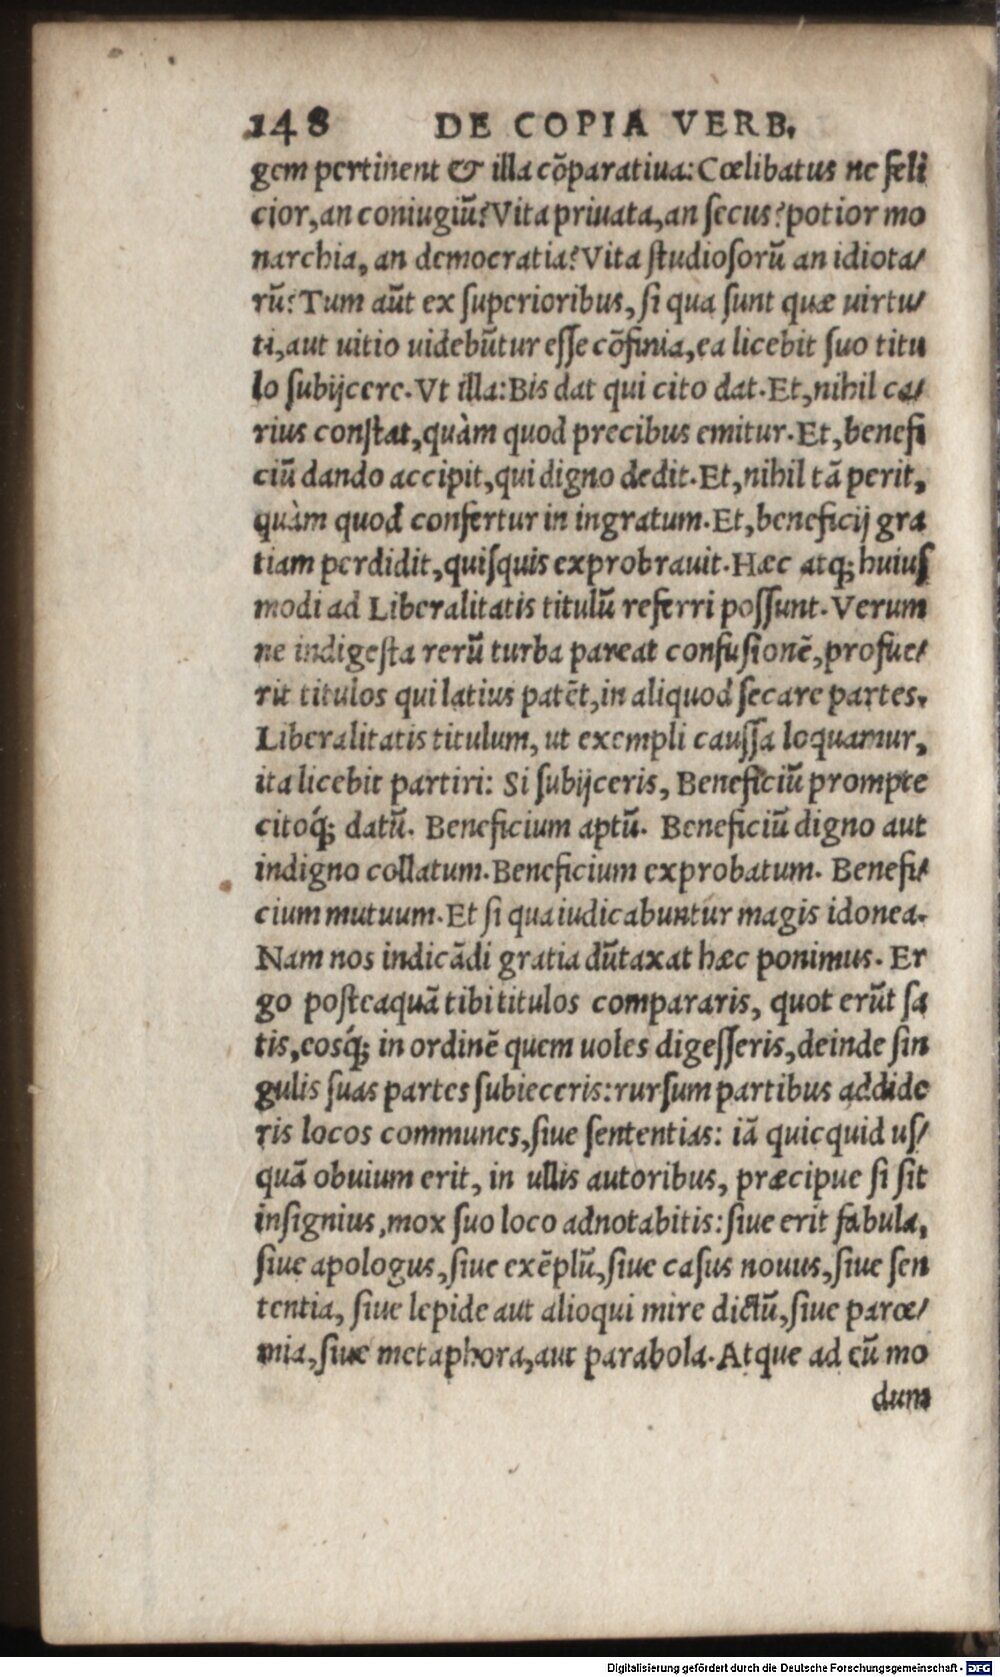 148 DE COPIA VERB.
gem pertinent & illa cõparatiua: Cœlibatus ne feli
cior, an coniugiũ? Vita priuata, an secus? potior mo
narchia, an democratia? Vita studiosorũ an idiota/
rũ? Tum aũt ex superioribus, si qua sunt quæ uirtu/
ti, aut uitio uidebũtur esse cõfinia, ea licebit suo titu
lo subijcere. Vt illa: Bis dat qui cito dat. Et, nihil ca/
rius constat, quàm quod precibus emitur. Et, benefi
ciũ dando accipit, qui digno dedit. Et, nihil tã perit,
quàm quod confertur in ingratum. Et, beneficij gra
tiam perdidit, quisquis exprobrauit. Hæc atq; huius
modi ad Liberalitatis titulũ referri possunt. Verum
ne indigesta rerũ turba pareat confusionẽ, profue/
rit titulos qui latius patẽt, in aliquod secare partes.
Liberalitatis titulum, ut exempli caussa loquamur,
ita licebit partiri: Si subijceris, Beneficiũ prompte
citoq́; datũ. Beneficium aptũ. Beneficiũ digno aut
indigno collatum. Beneficium exprobatum. Benefi/
cium mutuum. Et si qua iudicabuntur magis idonea.
Nam nos indicãdi gratia dũtaxat hæc ponimus. Er
go posteaquã tibi titulos compararis, quot erũt sa
tis, eosq́; in ordinẽ quem uoles digesseris, deinde sin
gulis suas partes subieceris: rursum partibus addide
ris locos communes, siue sententias: iã quicquid us/
quã obuium erit, in ullis autoribus, præcipue si sit
insignius, mox suo loco adnotabitis: siue erit fabula,
siue apologus, siue exẽplũ, siue casus nouus, siue sen
tentia, siue lepide aut alioqui mire dictũ, siue parœ/
mia, siue metaphora, aut parabola. Atque ad eũ mo
dum
Digitalisierung gefördert durch die Deutsche Forschungsgemeinschaft - DFG